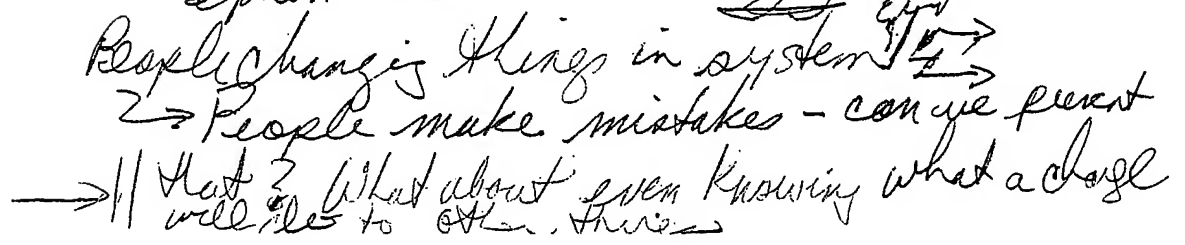 People changing things in system
2 → People make mistakes - can we prevent
→ || that? What about even knowing what a change
will do to other things